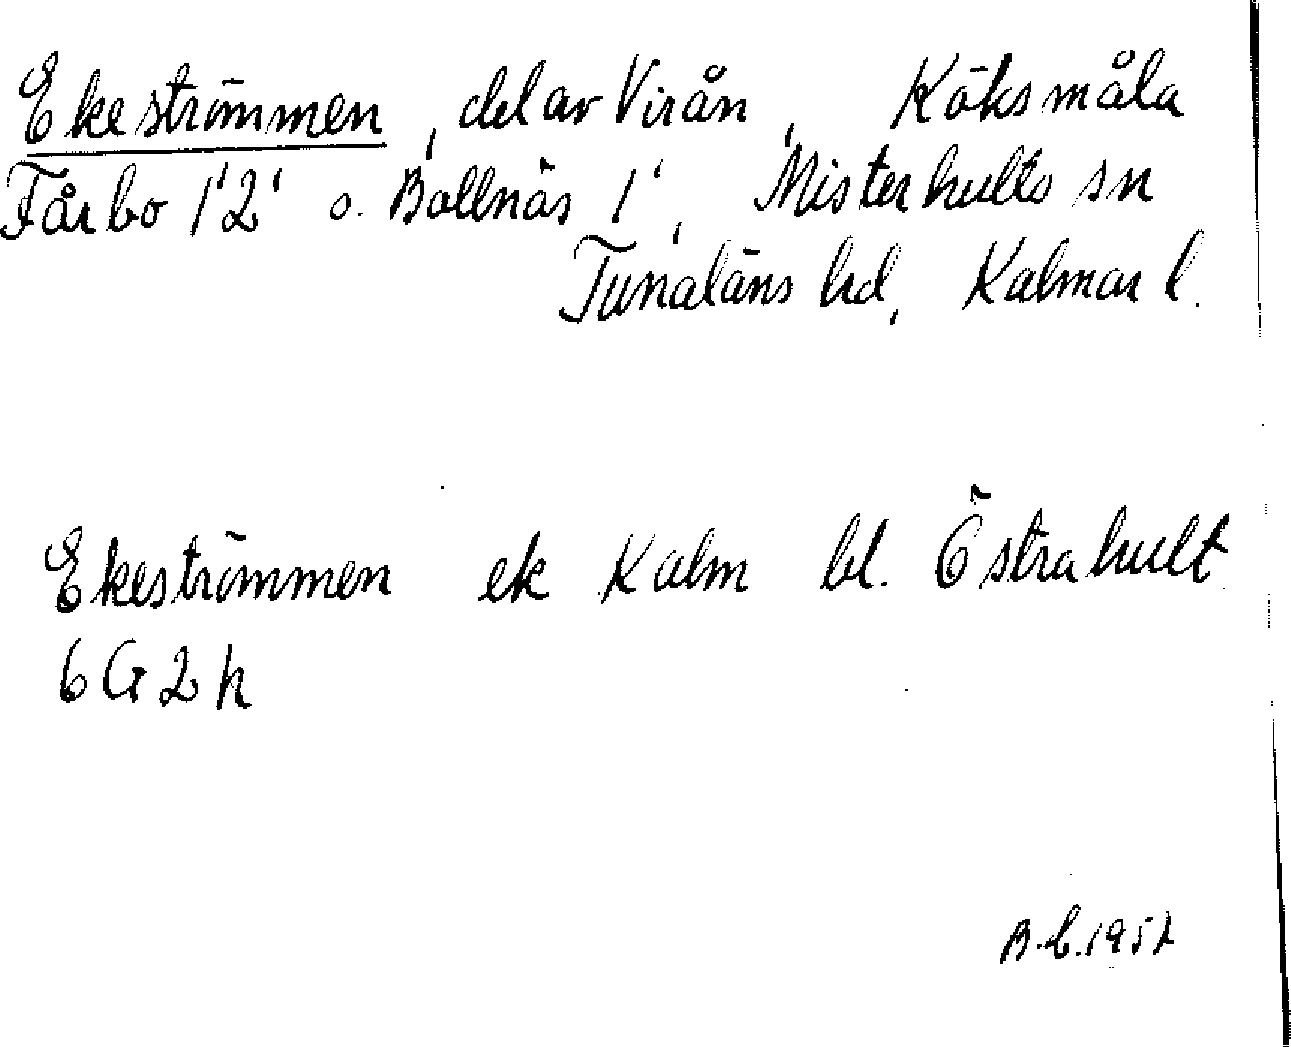 Ekeströmmen, del av Virån, Köksmåla
Fårbo 1'2' o. Bollnäs 1', Misterhults sn
Tunaläns hd, Kalmar l.
Ekeströmmen ek Kalm bl. Östrahult
6G2h
B.C. 1952